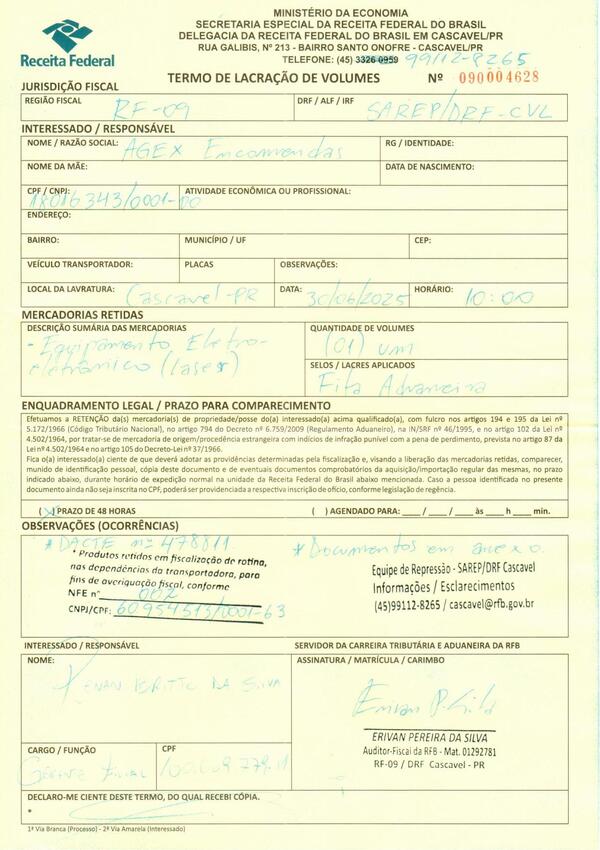 MINISTÉRIO DA ECONOMIA
SECRETARIA ESPECIAL DA RECEITA FEDERAL DO BRASIL
DELEGACIA DA RECEITA FEDERAL DO BRASIL EM CASCAVEL/PR
RUA GALIBIS, Nº 213 - BAIRRO SANTO ONOFRE - CASCAVEL/PR
TELEFONE: (45) 3326-0959 99112-8265
Receita Federal
TERMO DE LACRAÇÃO DE VOLUMES Nº 090004628
JURISDIÇÃO FISCAL
REGIÃO FISCAL RF-09
DRF / ALF / IRF SAREP/DRF-CVL
INTERESSADO / RESPONSÁVEL
NOME / RAZÃO SOCIAL: AGEX Encomendas
RG / IDENTIDADE:
NOME DA MÃE:
DATA DE NASCIMENTO:
CPF / CNPJ: 18016343/0001-00
ATIVIDADE ECONÔMICA OU PROFISSIONAL:
ENDEREÇO:
BAIRRO:
MUNICÍPIO / UF
CEP:
VEÍCULO TRANSPORTADOR:
PLACAS
OBSERVAÇÕES:
LOCAL DA LAVRATURA: Cascavel-PR
DATA: 30/06/2025
HORÁRIO: 10:00
MERCADORIAS RETIDAS
DESCRIÇÃO SUMÁRIA DAS MERCADORIAS
- Equipamento Eletro-
eletrônico (laser)
QUANTIDADE DE VOLUMES
(01) um
SELOS / LACRES APLICADOS
Fita Aduaneira
ENQUADRAMENTO LEGAL / PRAZO PARA COMPARECIMENTO
Efetuamos a RETENÇÃO da(s) mercadoria(s) de propriedade/posse do(a) interessado(a) acima qualificado(a), com fulcro nos artigos 194 e 195 da Lei nº
5.172/1966 (Código Tributário Nacional), no artigo 794 do Decreto nº 6.759/2009 (Regulamento Aduaneiro), na IN/SRF nº 46/1995, e no artigo 102 da Lei nº
4.502/1964, por tratar-se de mercadoria de origem/procedência estrangeira com indícios de infração punível com a pena de perdimento, prevista no artigo 87 da
Lei nº 4.502/1964 e no artigo 105 do Decreto-Lei nº 37/1966.
Fica o(a) interessado(a) ciente de que deverá adotar as providências determinadas pela fiscalização e, visando a liberação das mercadorias retidas, comparecer,
munido de identificação pessoal, cópia deste documento e de eventuais documentos comprobatórios da aquisição/importação regular das mesmas, no prazo
indicado abaixo, durante horário de expedição normal na unidade da Receita Federal do Brasil abaixo mencionada. Caso a pessoa identificada no presente
documento ainda não seja inscrita no CPF, poderá ser providenciada a respectiva inscrição de ofício, conforme legislação de regência.
(X) PRAZO DE 48 HORAS
( ) AGENDADO PARA: ____ / ____ / ____ às ____ h ____ min.
OBSERVAÇÕES (OCORRÊNCIAS)
* DACTE nº 478811
* Documentos em anexo.
* Produtos retidos em fiscalização de rotina,
nas dependências da transportadora, para
fins de averiguação fiscal, conforme
NFE nº 002
CNPJ/CPF: 60954513/0001-63
Equipe de Repressão - SAREP/DRF Cascavel
Informações / Esclarecimentos
(45)99112-8265 / cascavel@rfb.gov.br
INTERESSADO / RESPONSÁVEL
NOME:
RENAN BRITTO DA SILVA
CARGO / FUNÇÃO
Gerente Filial
CPF
DECLARO-ME CIENTE DESTE TERMO, DO QUAL RECEBI CÓPIA.
*
SERVIDOR DA CARREIRA TRIBUTÁRIA E ADUANEIRA DA RFB
ASSINATURA / MATRÍCULA / CARIMBO
ERIVAN PEREIRA DA SILVA
Auditor-Fiscal da RFB - Mat. 01292781
RF-09 / DRF Cascavel - PR
1ª Via Branca (Processo) - 2ª Via Amarela (Interessado)